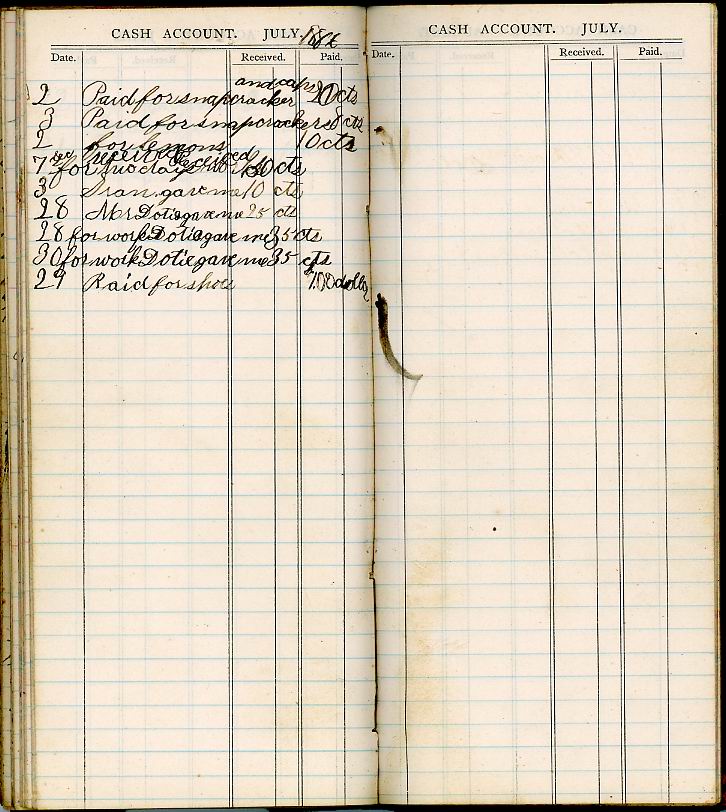 CASH ACCOUNT. JULY.
Date. Received. Paid.
and caps
2 Paid for snapcracker 20 cts
3 Paid for snapcrackers 8 cts
2 for lemons 10 cts
received
7 for two days 50 cts
3 gave me 10 cts
28 Mr Dotie gave me 25 cts
28 for work Dotie gave me 35 cts
30 for work Dotie gave me 35 cts
29 Paid for shoes 1.00 dollar
CASH ACCOUNT. JULY.
Date. Received. Paid.